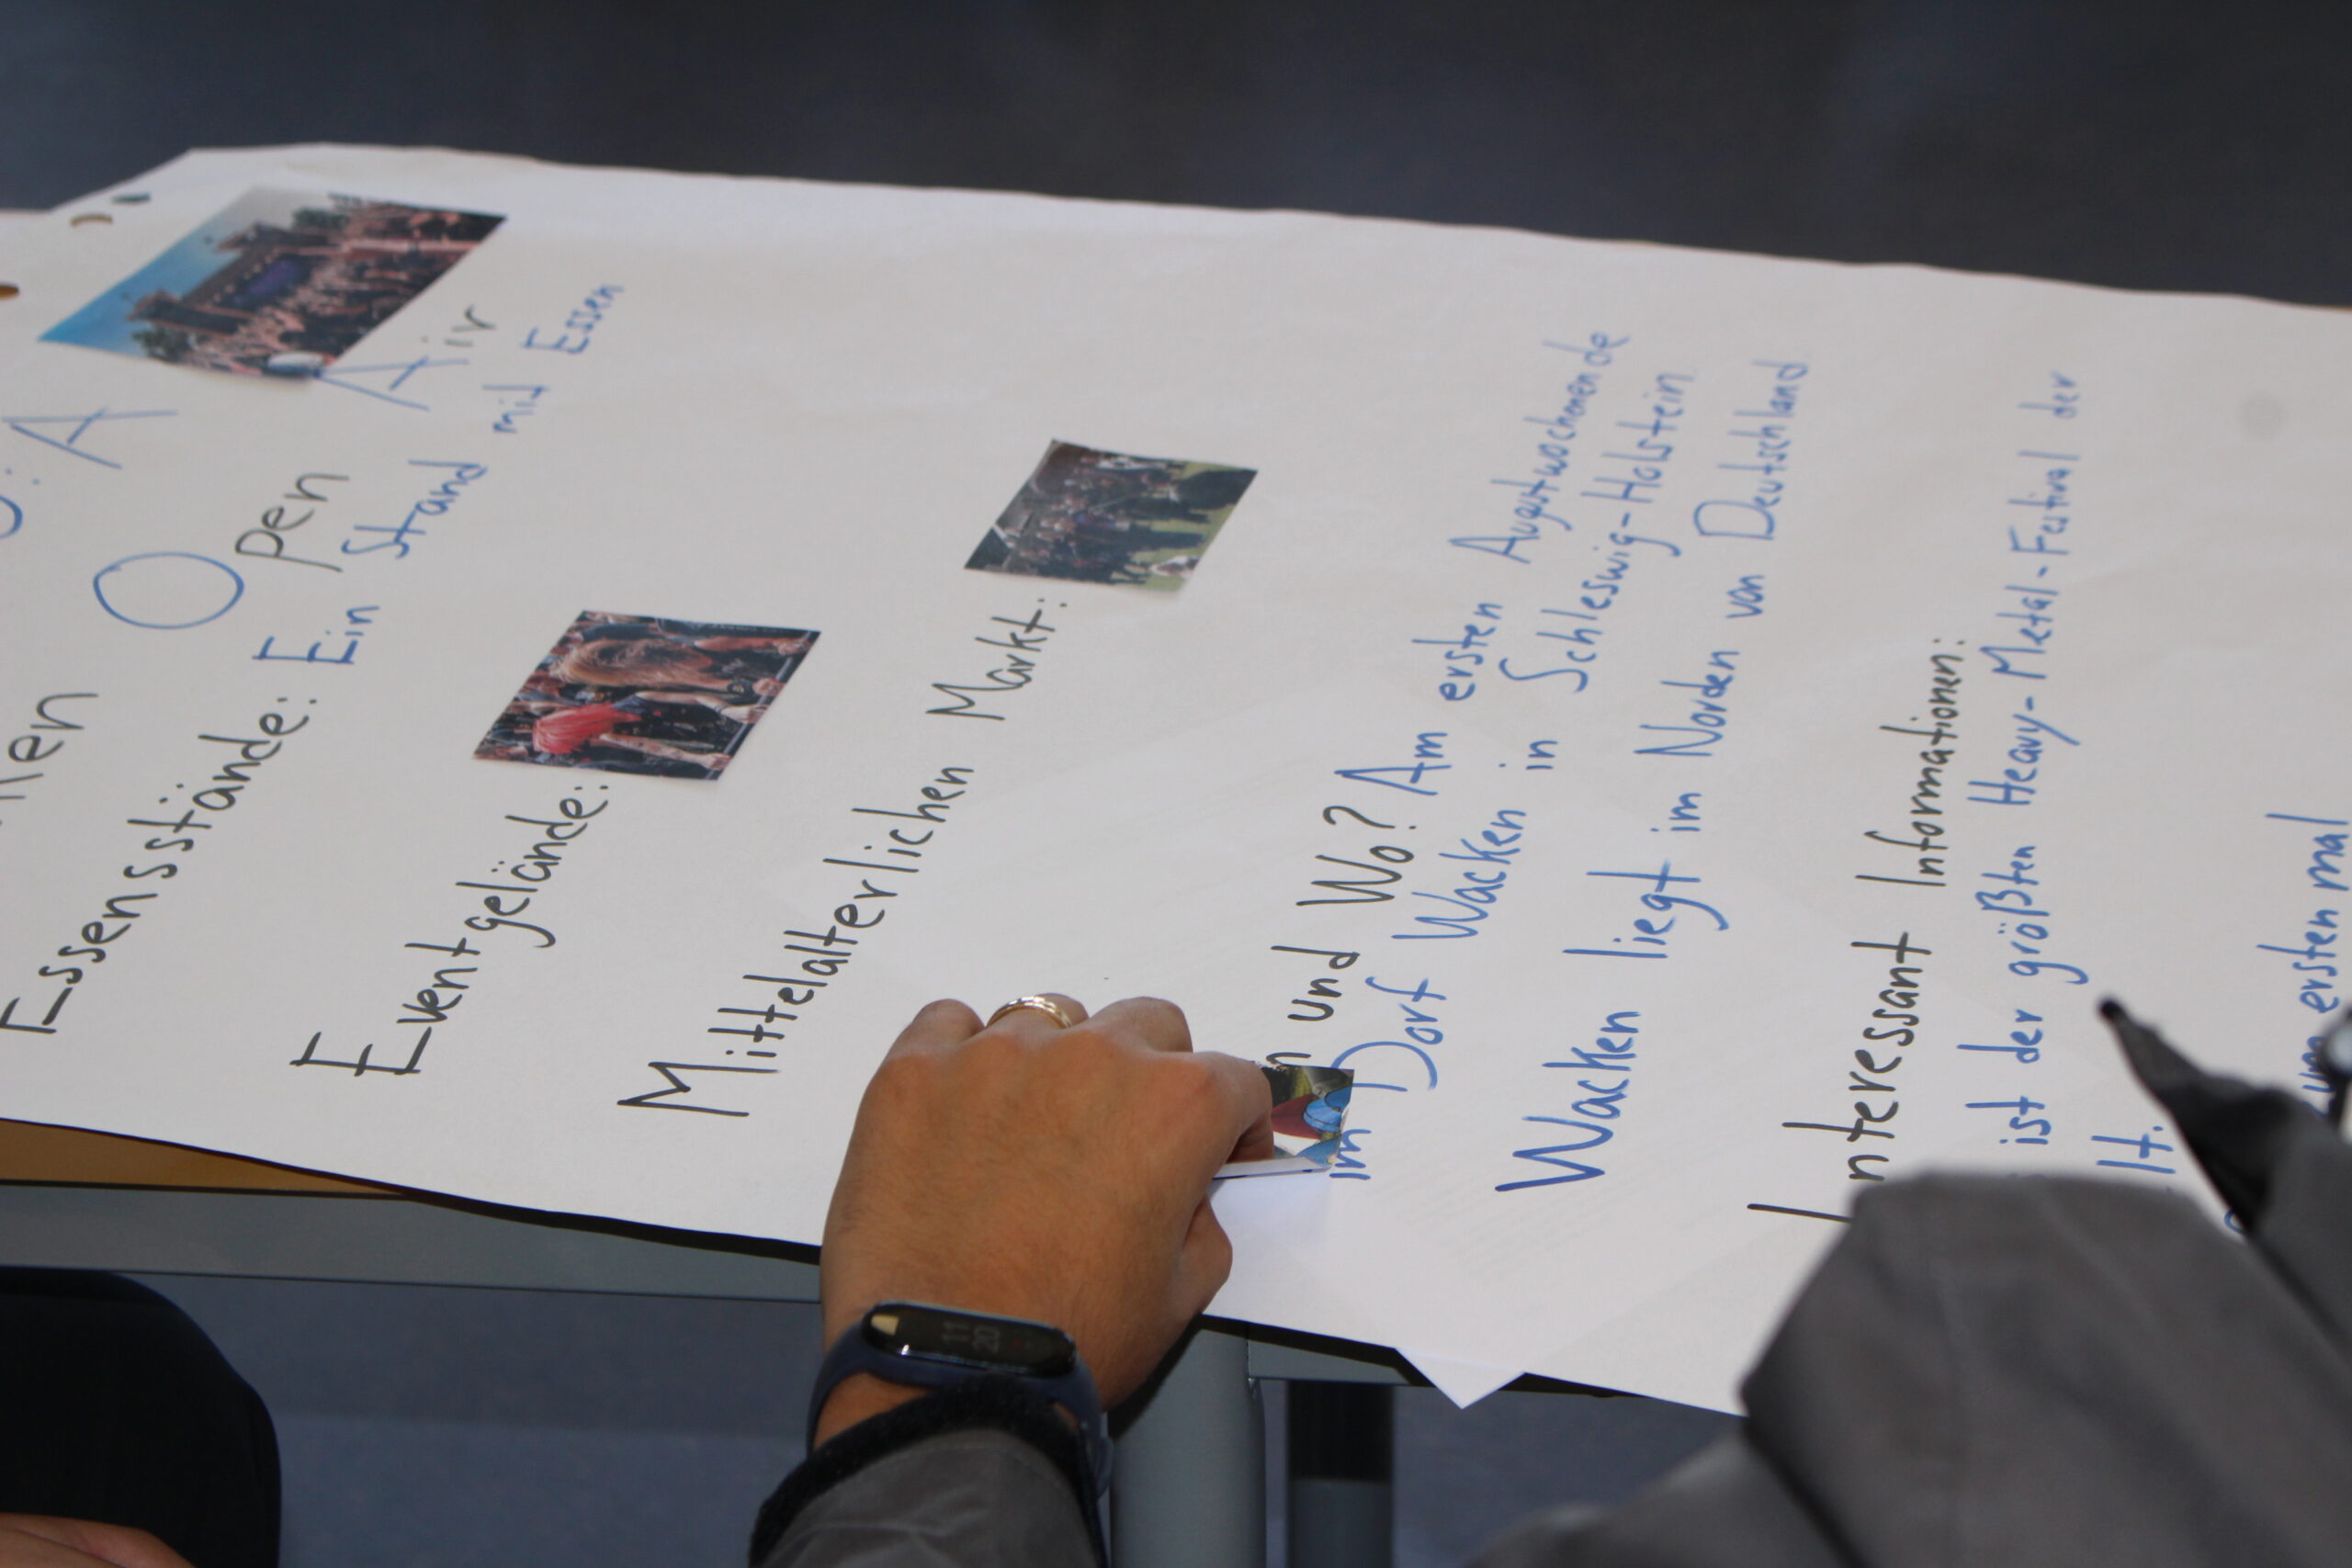 : A
Open Air
Essensstände: Ein Stand mit Essen
Eventgelände:
Mittelalterlichen Markt:
und Wo? Am ersten Augustwochenende
im Dorf Wacken in Schleswig-Holstein
Wacken liegt im Norden von Deutschland
Interessant Informationen:
ist der größten Heavy-Metal-Festival der
lt.
ersten mal
11
20